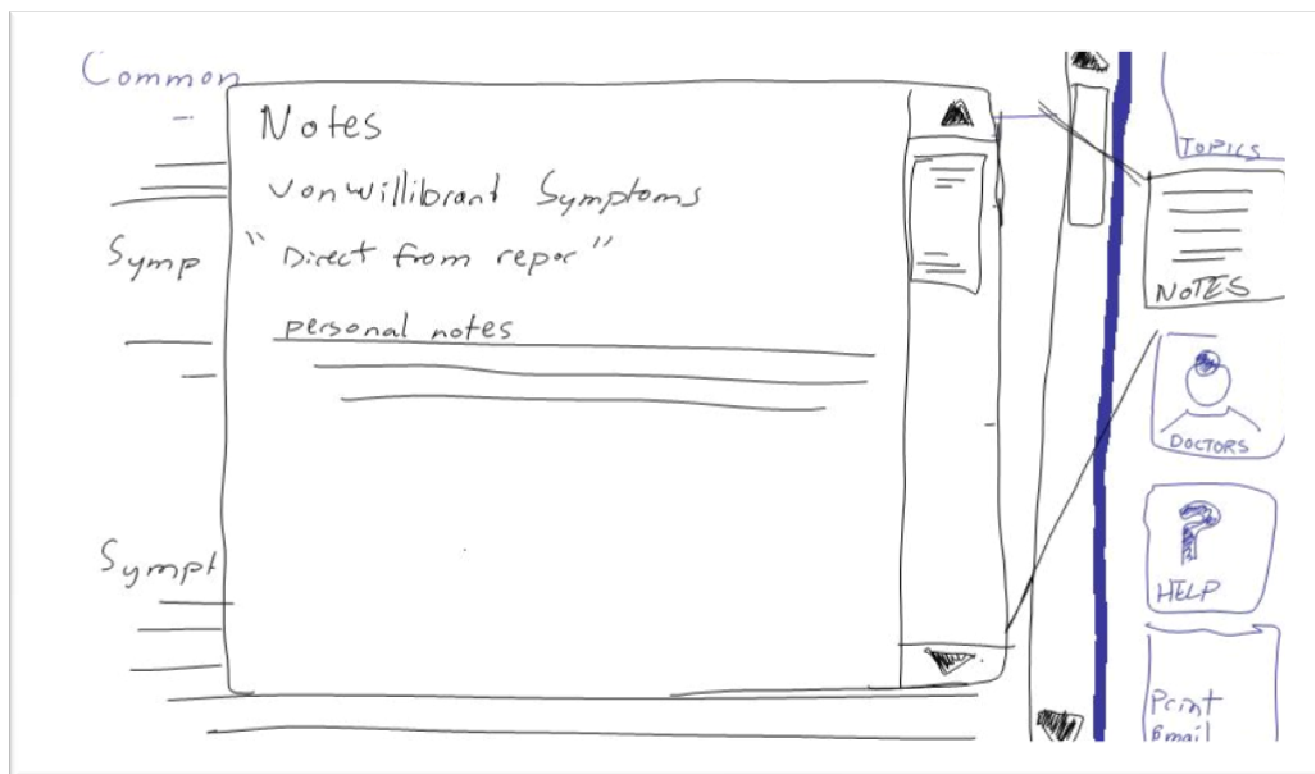 Common
Notes
VonWillibrant Symptoms
Symp
"Direct from repor"
personal notes
Sympt
TOPICS
NOTES
DOCTORS
HELP
Print
Email